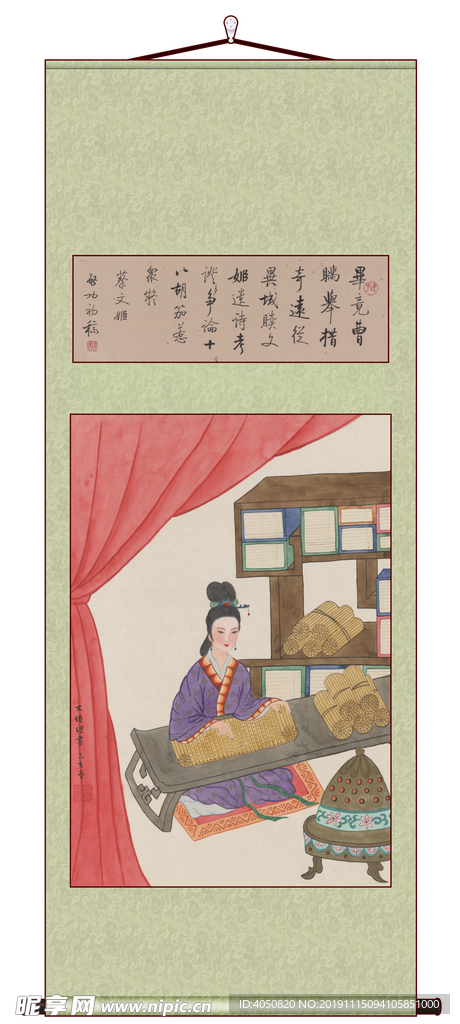 畢竟曹
瞞舉措
奇遠從
異域贖文
姬遺詩考
證爭論十
八胡笳惹
眾疑
蔡文姬
啟功初稿
文姬
昵享网 www.nipic.cn
ID:4050820 NO:20191115094105851000